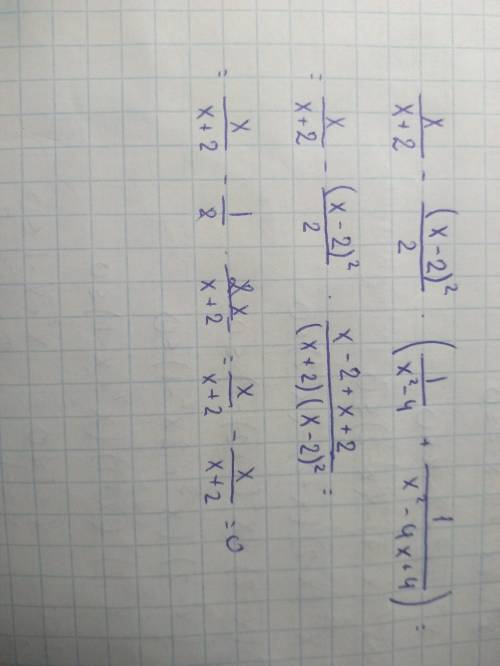 x/(x+2) - (x-2)²/2 · (1/(x²-4) + 1/(x²-4x+4)) =
= x/(x+2) - (x-2)²/2 · (x-2+x+2)/((x+2)(x-2)²) =
= x/(x+2) - 1/2 · 2x/(x+2) = x/(x+2) - x/(x+2) = 0